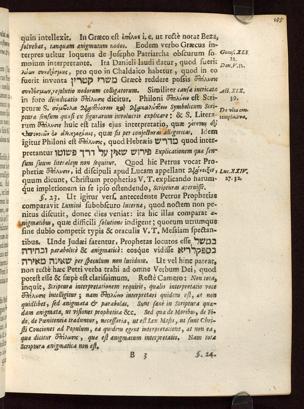 quis intellexit. In Græco est ἐπέλυε i. e. ut rectè notat Beza,
solvebat, tanquam ænigmatum nodos. Eodem verbo Græcus in-
terpres utitur loquens de Josepho Patriarcha obscurum so-
mnium interpretante. Ita Danieli laudi datur, quod fuerit
λύων συνδέσμους, pro quo in Chaldaico habetur, quod in eo
fuerit inventa משרי קטרין Græcè reddere possis
συνδέσμων, resolutio nodorum colligatorum. Similiter causa intricata
in foro dirimitatio dicitur. Philoni est Scri-
pturæ S. Symbolicum Scri-
pturæ sensum quasi ex figurarum involucris explicare; & S. Litera-
rum huic est talis ejus interpretatio, quæ
quæ fit per conjecturas ænigmaticas. Idem
igitur Philoni est quod Hebræis מדרש quod inter-
pretantur פירוש שאין על דרך פשוט Explicationem quæ sen-
sum suum literalem non sequitur. Quod hic Petrus vocat Pro-
phetiæ id discipuli apud Lucam appellant
quum dicunt, Christum prophetias V. T. explicando harum-
que impletionem in se ipso ostendendo, Scripturas aperuisse.
§. 23. Ut igitur vers. antecedente Petrus Prophetias
comparavit Lumini subobscuro lucernæ, quod noctem non pe-
nitus discutit, donec dies veniat: ita hic illas comparat æ-
nigmatibus, quæ difficili solutione indigent; quorum utrumque
in dubio competit typis & oraculis V. T. Messiam spectan-
tibus. Unde Judæi fatentur, Prophetas locutos esse במשל
parabolicè & ænigmaticè: eosque vidisse
שאינה מאירה per speculum non lucidum. Ut vel hinc pateat,
non rectè hæc Petri verba trahi ad omne Verbum Dei, quod
potest esse & sæpè est clarissimum. Rectè Camero: Non tota,
inquit, Scriptura interpretationem requirit, qualis interpretatio voce
intelligitur; nam interpretatio quidem est, at non
quælibet, sed ænigmatum & parabolæ. Sunt sanè in Scriptura quæ-
dam ænigmata, ut visiones propheticæ &c. Sed quæ de Moribus, de Fi-
de, de Pœnitentia traduntur, necessaria, ut est Lex Mosis, ut sunt Chri-
sti Conciones ad Populum, ea quidem egent interpretatione, at non ea,
quæ dicitur quæ est ænigmatum interpretatio. Nam tota
Scriptura ænigmatica non est.
B 3
§. 24.
Dan. V. 12.
De vita con-
templativa.
Luc. XXIV.
27. 32.